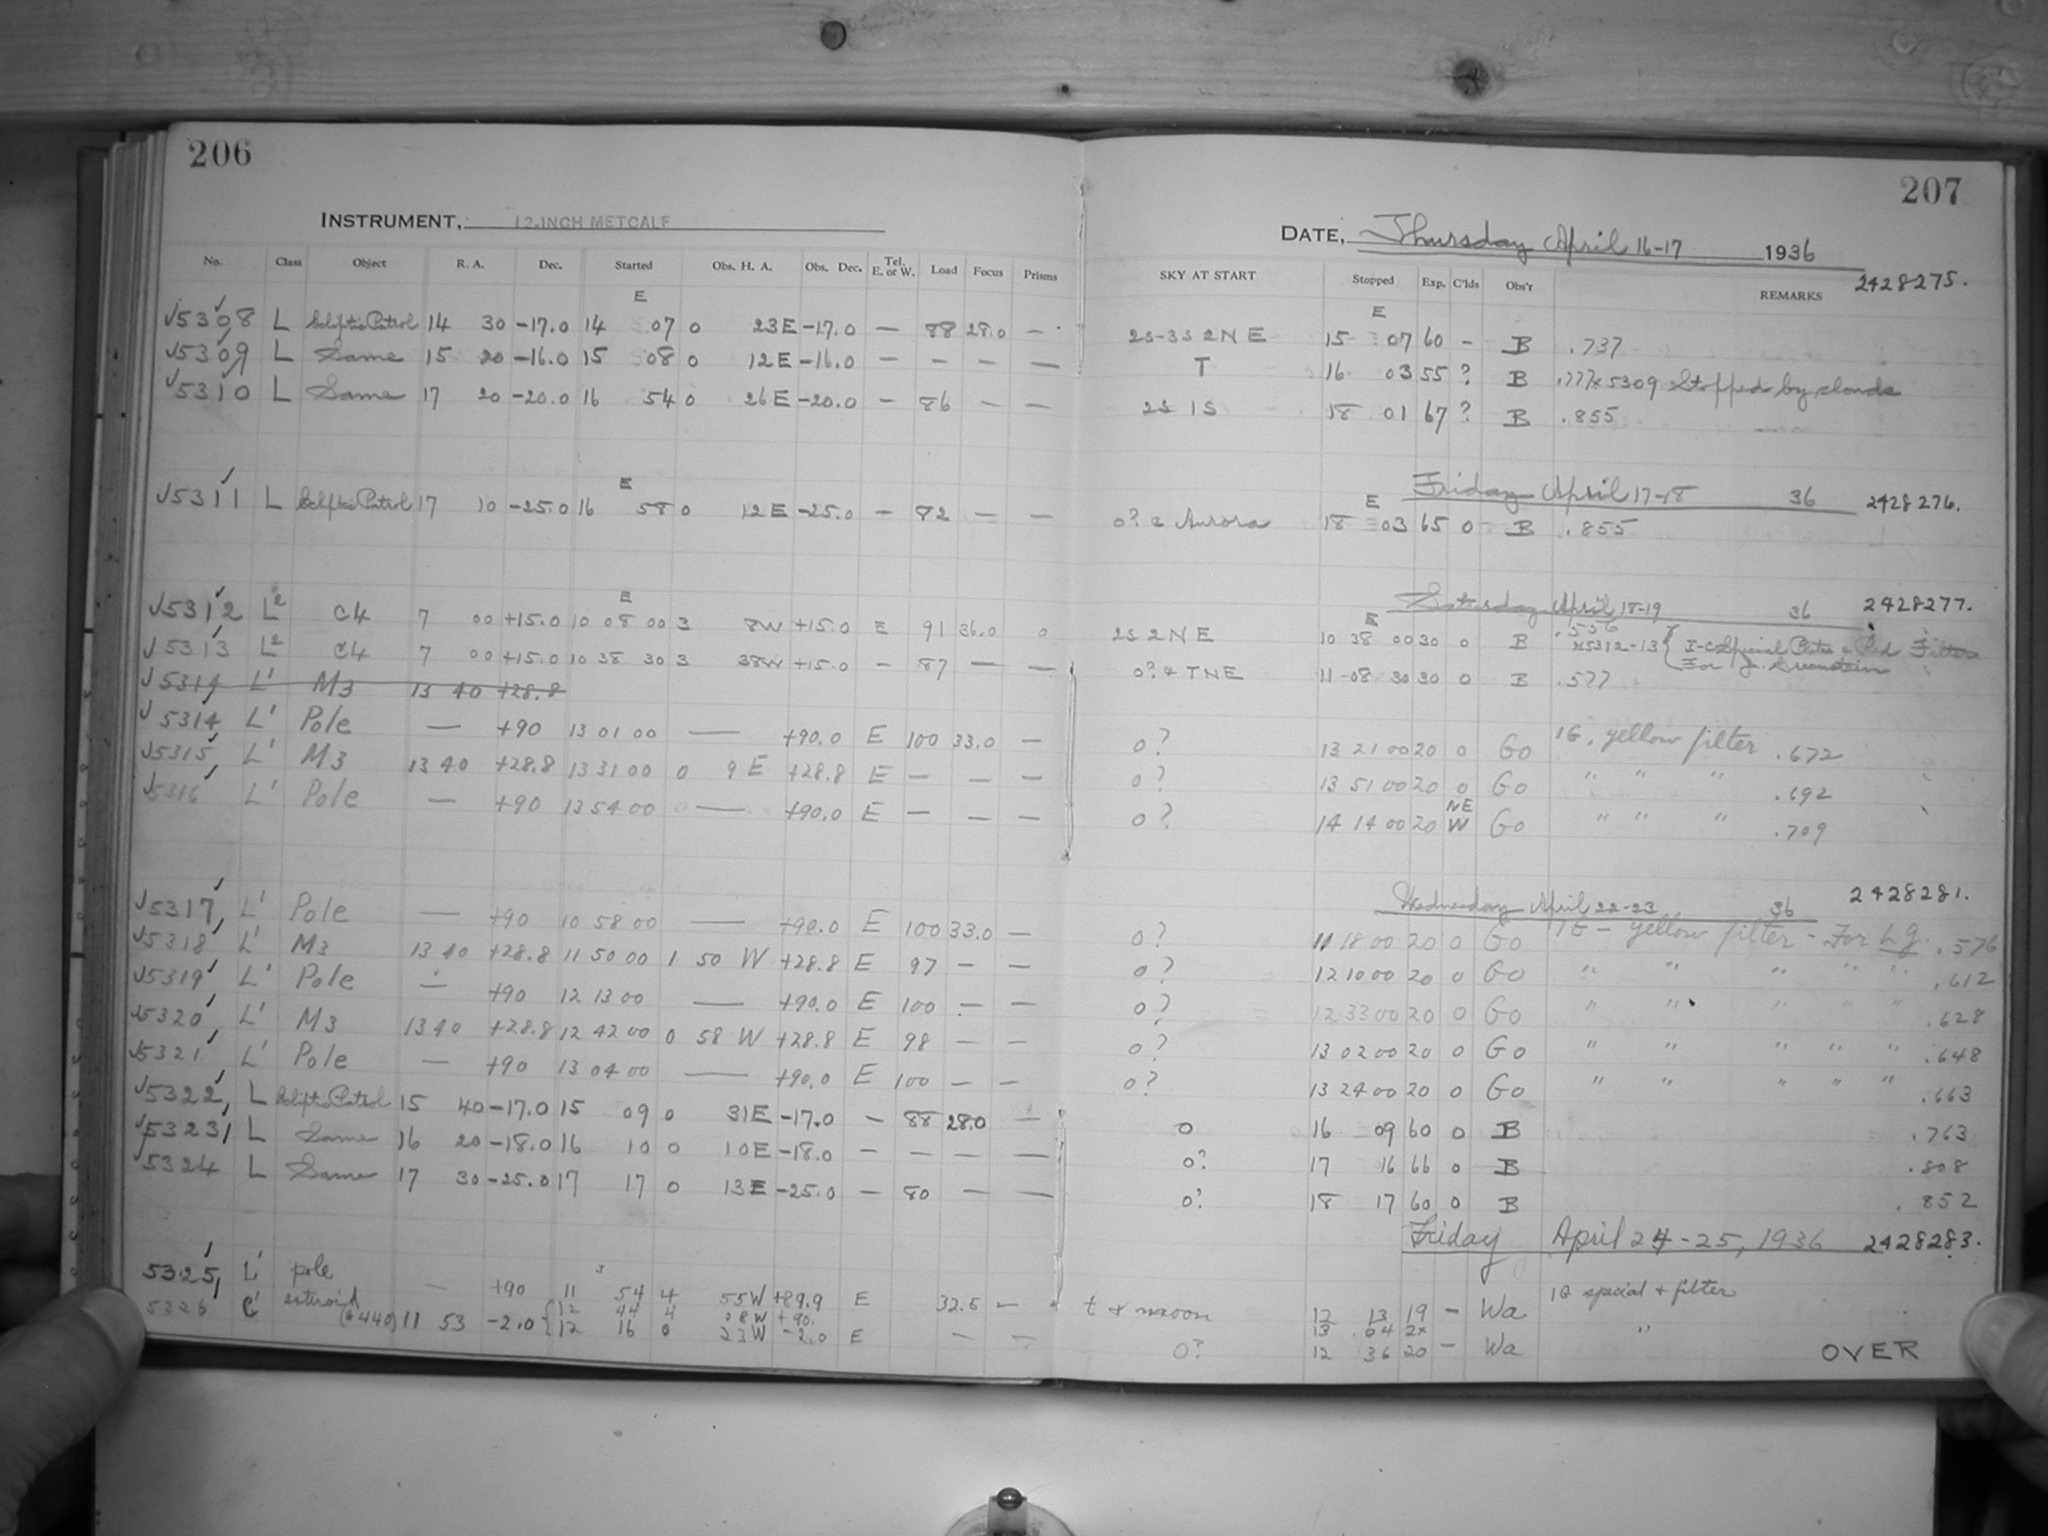 206
INSTRUMENT, 12-INCH METCALF
No. Class Object R. A. Dec. Started Obs. H. A. Obs. Dec. Tel. E. or W. Load Focus Prisms
E
√5308 L Ecliptic Patrol 14 30 -17.0 14 07 0 23E -17.0 — 88 28.0 —
√5309 L Same 15 20 -16.0 15 08 0 12E -16.0 — — — —
√5310 L Same 17 20 -20.0 16 54 0 26E -20.0 — 86 — —
E
√5311 L Ecliptic Patrol 17 10 -25.0 16 58 0 12E -25.0 — 82 — —
E
√5312 L2 C4 7 00 +15.0 10 08 00 3 8W +15.0 E 91 36.0 0
√5313 L2 C4 7 00 +15.0 10 38 30 3 38W +15.0 — 87 — —
√5314 L' M3 13 40 +28.8
√5314 L' Pole — +90 13 01 00 — +90.0 E 100 33.0 —
√5315 L' M3 13 40 +28.8 13 31 00 0 9 E +28.8 E — — —
√5316 L' Pole — +90 13 54 00 — +90.0 E — — —
√5317 L' Pole — +90 10 58 00 — +90.0 E 100 33.0 —
√5318 L' M3 13 40 +28.8 11 50 00 1 50 W +28.8 E 97 — —
√5319 L' Pole — +90 12 13 00 — +90.0 E 100 — —
√5320 L' M3 13 40 +28.8 12 42 00 0 58 W +28.8 E 98 — —
√5321 L' Pole — +90 13 04 00 — +90.0 E 100 — —
√5322 L Ecliptic Patrol 15 40 -17.0 15 09 0 31E -17.0 — 88 28.0 —
√5323 L Same 16 20 -18.0 16 10 0 10E -18.0 — — — —
√5324 L Same 17 30 -25.0 17 17 0 13E -25.0 — 80 — —
5325 L' pole — +90 11 54 4 55W +89.9 E 32.5 —
{12 44 4 08W +90.
5326 C' asteroid (#440) 11 53 -2.0 {12 16 0 23W -2.0 E — —
207
DATE, Thursday April 16-17 1936
SKY AT START Stopped Exp. C'lds Obs'r REMARKS 2428275.
E
2S-3S 2NE 15 07 60 - B .737
T 16 03 55 ? B .777 x5309 Stopped by clouds
2S 1S 18 01 67 ? B .855
Friday April 17-18 36 2428276.
E
0? & Aurora 18 03 65 0 B .855
Saturday April 18-19 36 2428277.
E
2S 2NE 10 38 00 30 0 B .556 x5312-13 { I-C Special Plates & Red Filters
For J. Greenstein
0? & TNE 11-08 30 30 0 B .577
0? 13 21 00 20 0 Go 1G, yellow filter .672
0? 13 51 00 20 0 Go " " " .692
0? 14 14 00 20 NE W Go " " " .709
Wednesday April 22-23 36 2428281.
0? 11 18 00 20 0 Go 1G - yellow filter - For L.G. .576
0? 12 10 00 20 0 Go " " " " " .612
0? 12 33 00 20 0 Go " " " " " .628
0? 13 02 00 20 0 Go " " " " " .648
0? 13 24 00 20 0 Go " " " " " .663
0 16 09 60 0 B .763
0? 17 16 66 0 B .808
0? 18 17 60 0 B .852
Friday April 24-25, 1936 2428283.
t & moon 12 13 19 - Wa 1G special + filter
13 04 2x
0? 12 36 20 - Wa "
OVER